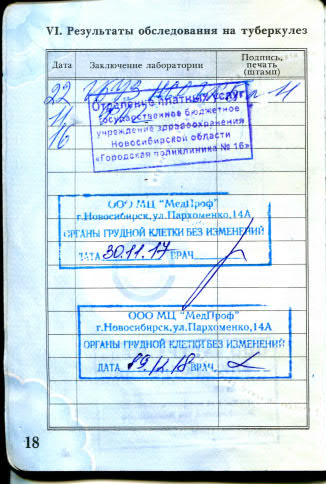 VI. Результаты обследования на туберкулез
Дата
Заключение лаборатории
Подпись, печать (штамп)
22
11
16
Отделение платных услуг
Государственное бюджетное
учреждение здравоохранения
Новосибирской области
«Городская поликлиника № 16»
ООО МЦ "МедПроф"
г.Новосибирск,ул.Пархоменко,14А
ОРГАНЫ ГРУДНОЙ КЛЕТКИ БЕЗ ИЗМЕНЕНИЙ
ДАТА 30.11.17 ВРАЧ
ООО МЦ "МедПроф"
г.Новосибирск,ул.Пархоменко,14А
ОРГАНЫ ГРУДНОЙ КЛЕТКИ БЕЗ ИЗМЕНЕНИЙ
ДАТА 12.18 ВРАЧ
18